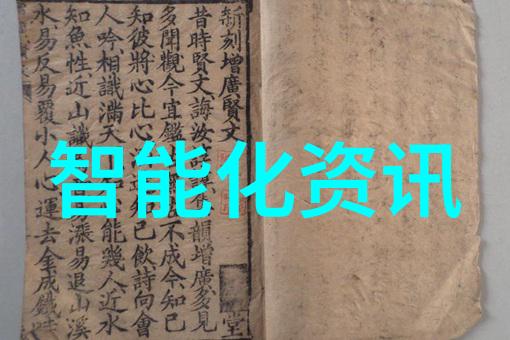 智能化资讯
新刻增廣賢文
昔時賢文誨汝韻增廣多見
多聞觀今宜鑑不成今知己
知彼將心比心知己飲詩向會
人吟相識滿天能幾人近水
知魚性近山識漲易退山溪
水易反易覆小人心運去金成鐵
堂